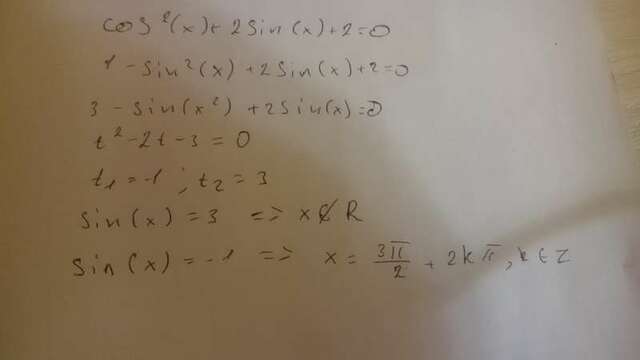 cos²(x)+2sin(x)+2=0
1-sin²(x)+2sin(x)+2=0
3-sin(x²)+2sin(x)=0
t²-2t-3=0
t₁=-1; t₂=3
sin(x)=3 => x∉R
sin(x)=-1 => x=3π/2+2kπ, k∈Z